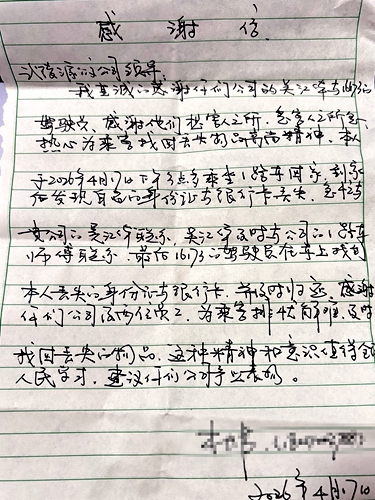 感谢信
公司领导:
我真诚的感谢你们公司的吴江
驾驶员,感谢他们想客人之所想,急客人之所急,
热心为乘客找回丢失物品高尚精神,本人
于2026年4月17日下午3点多乘坐1路车回家,到家
后发现自己的身份证与银行卡丢失,急忙与
贵公司的吴江联系,吴江及时与公司的1路车
师傅联系,最后1617的驾驶员在车上找到
本人丢失的身份证与银行卡,并及时归还,感谢
你们公司这两位员工,为乘客排忧解难,及时
找回丢失的物品,这种精神和意识值得
人民学习,建议你们公司予以表扬。
2026年4月17日